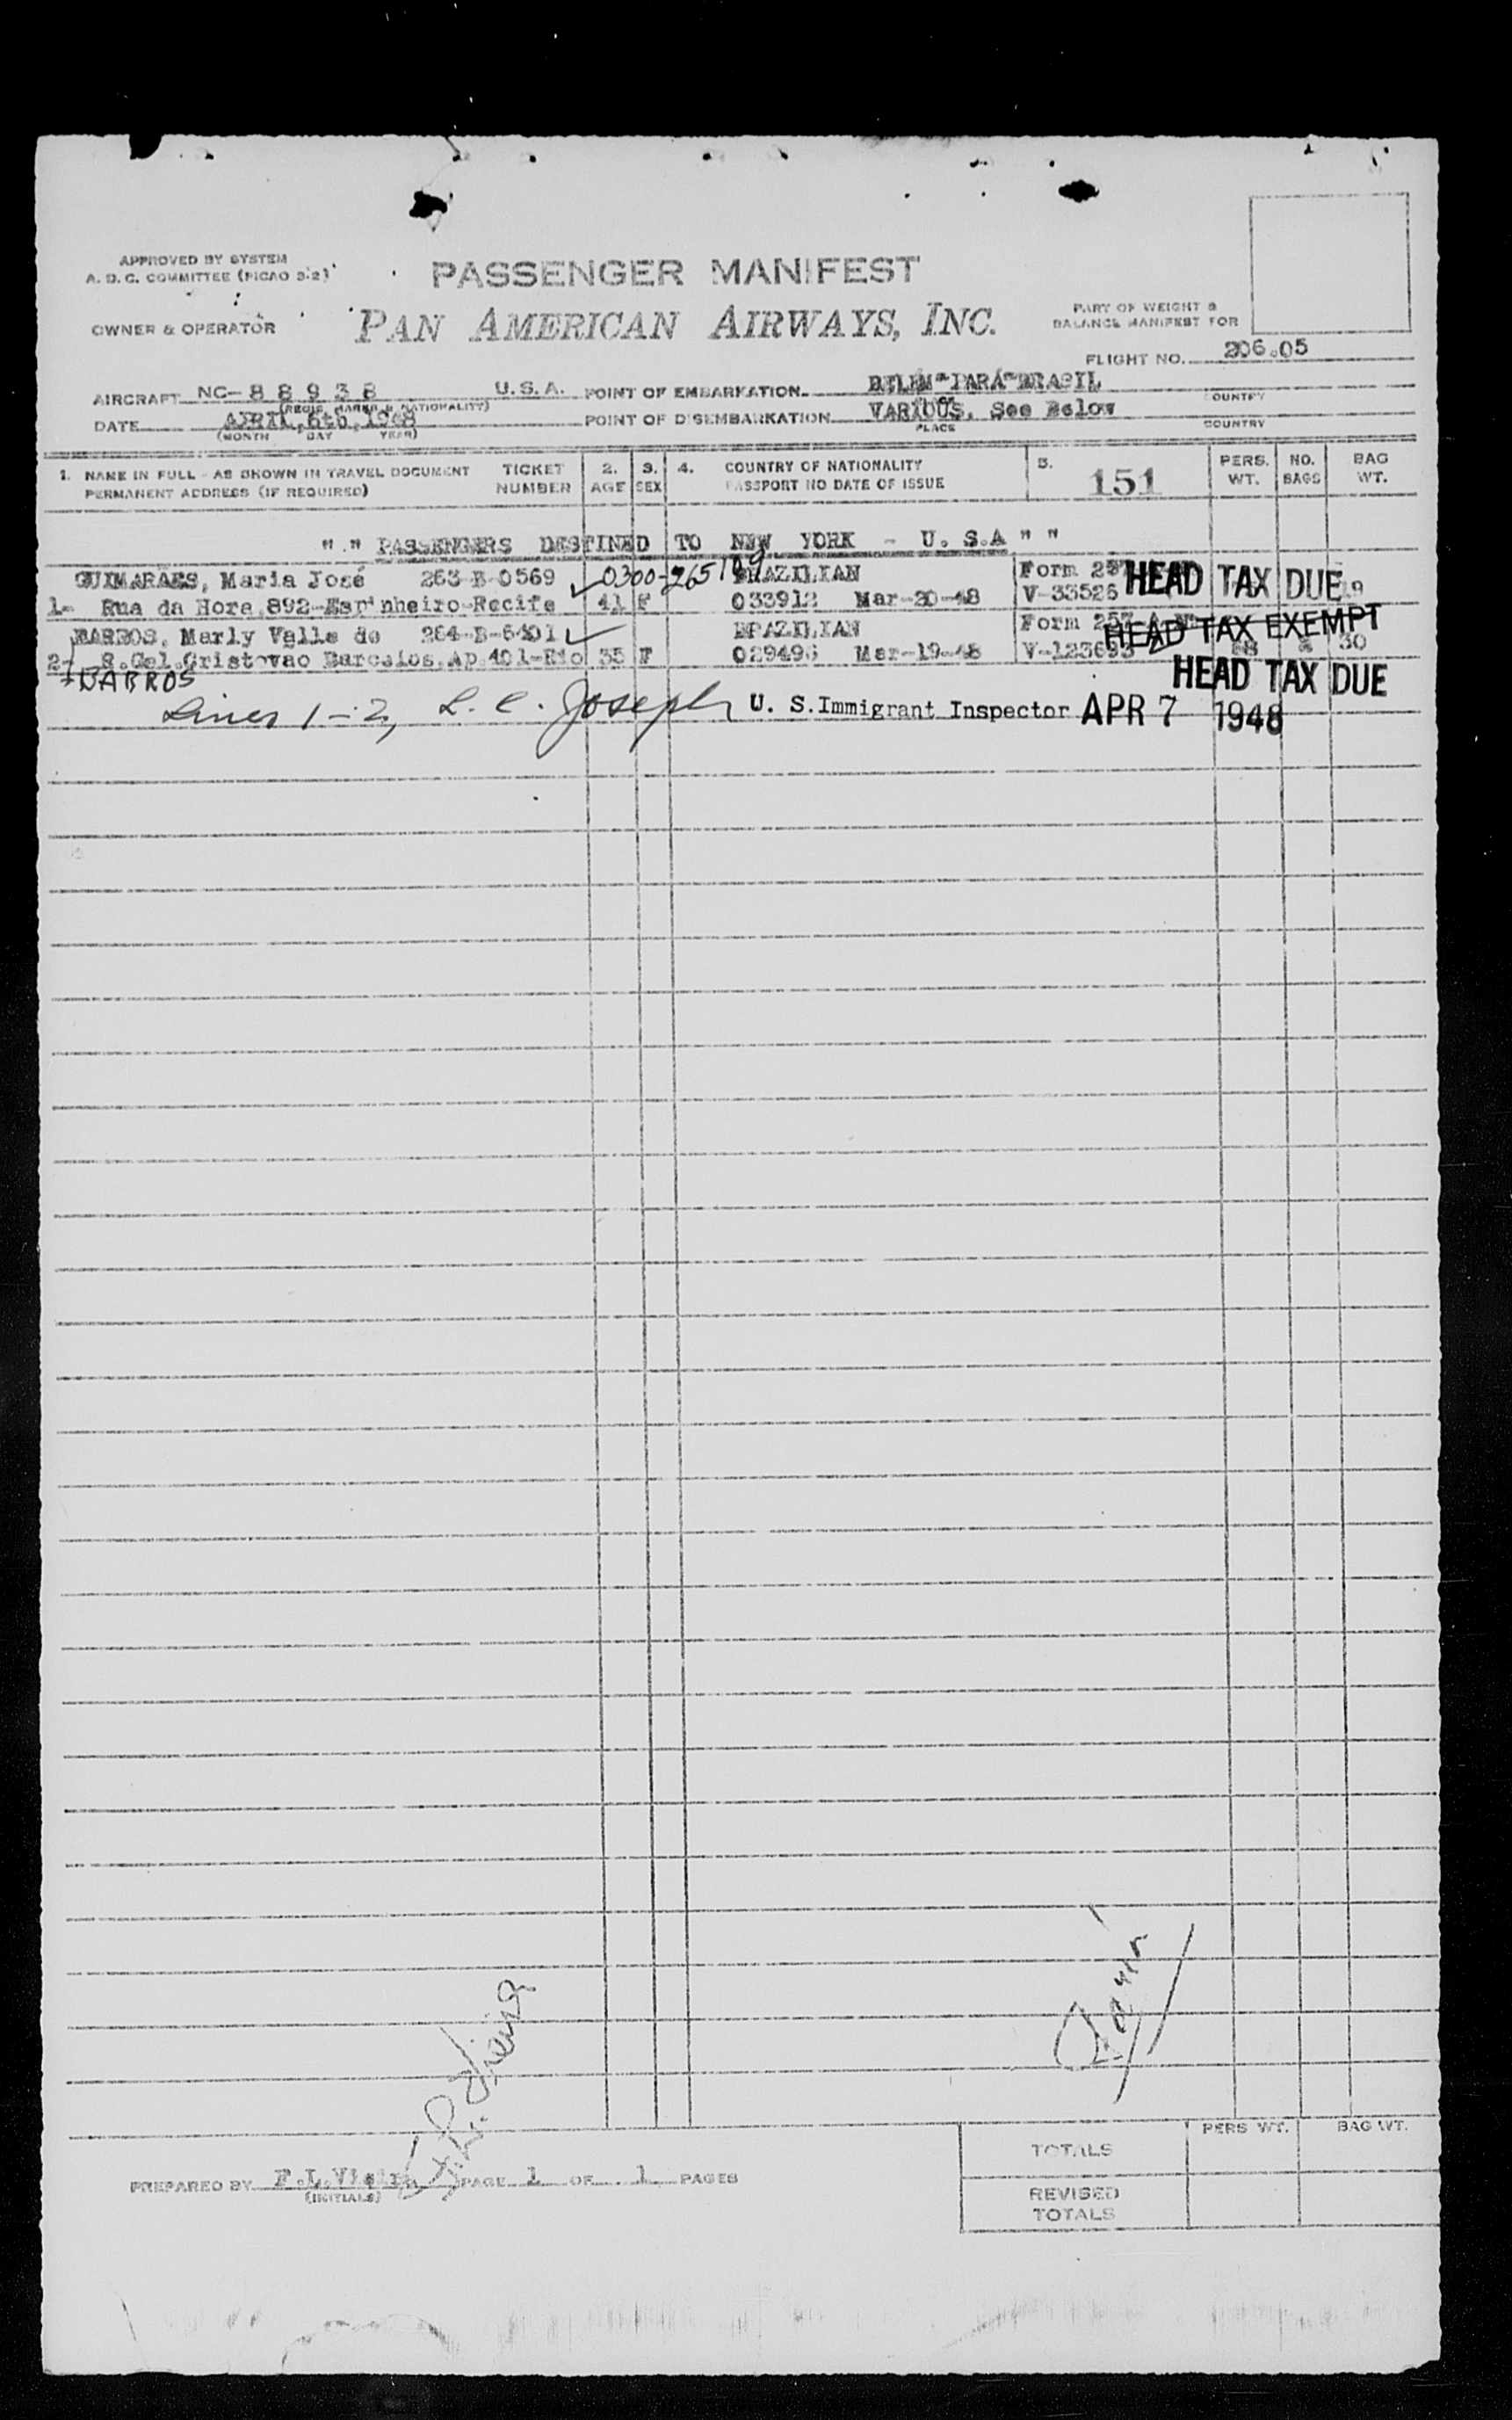 APPROVED BY SYSTEM
A. D. C. COMMITTEE (PICAO 3.2)
PASSENGER MANIFEST
OWNER & OPERATOR PAN AMERICAN AIRWAYS, INC.
PART OF WEIGHT &
BALANCE MANIFEST FOR
FLIGHT NO. 206.05
AIRCRAFT NC-88938 U.S.A. POINT OF EMBARKATION BELEM-PARÁ-BRASIL
(REGIS. MARKS & NATIONALITY) COUNTRY
DATE APRIL,6th,1948 POINT OF DISEMBARKATION VARIOUS. See Below
(MONTH DAY YEAR) PLACE COUNTRY
1. NAME IN FULL - AS SHOWN IN TRAVEL DOCUMENT TICKET 2. 3. 4. COUNTRY OF NATIONALITY 5. PERS. NO. BAG
PERMANENT ADDRESS (IF REQUIRED) NUMBER AGE SEX PASSPORT NO DATE OF ISSUE 151 WT. BAGS WT.
" " PASSENGERS DESTINED TO NEW YORK - U.S.A " "
GUIMARAES, Maria José 263-B-0569 0300-265109 BRAZILIAN Form 257 HEAD TAX DUE
1- Rua da Hora,892-Espinheiro-Recife 41 F 033912 Mar-20-48 V-33526 19
BARBOS, Marly Valle de 264-B-6401 BRAZILIAN Form 257 HEAD TAX EXEMPT
2- R.Gel.Cristovao Barcelos,Ap 401-Rio 35 F 029496 Mar-19-48 V-123693 30
BARROS HEAD TAX DUE
Lines 1-2, L. C. Joseph U. S. Immigrant Inspector APR 7 1948
PREPARED BY F.L.Vieira PAGE 1 OF 1 PAGES
(INITIALS)
PERS WT. BAG WT.
TOTALS
REVISED
TOTALS